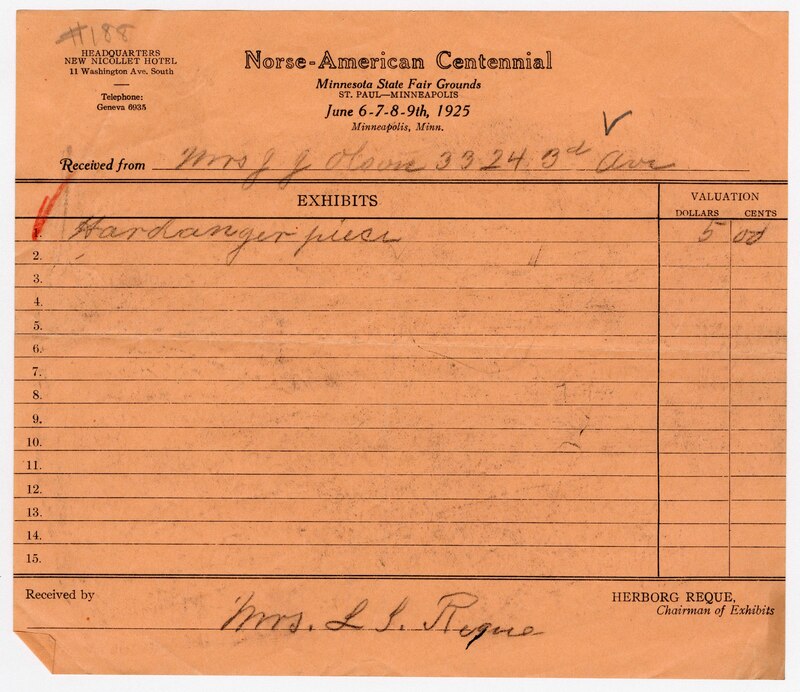 #188
HEADQUARTERS
NEW NICOLLET HOTEL
11 Washington Ave. South
Telephone:
Geneva 6935
Norse-American Centennial
Minnesota State Fair Grounds
ST. PAUL—MINNEAPOLIS
June 6-7-8-9th, 1925
Minneapolis, Minn.
Received from Mrs J J Olson 3324 3rd Ave
EXHIBITS
VALUATION
DOLLARS CENTS
1. Hardanger piece 5 00
2.
3.
4.
5.
6.
7.
8.
9.
10.
11.
12.
13.
14.
15.
Received by Mrs. L S. Reque
HERBORG REQUE,
Chairman of Exhibits